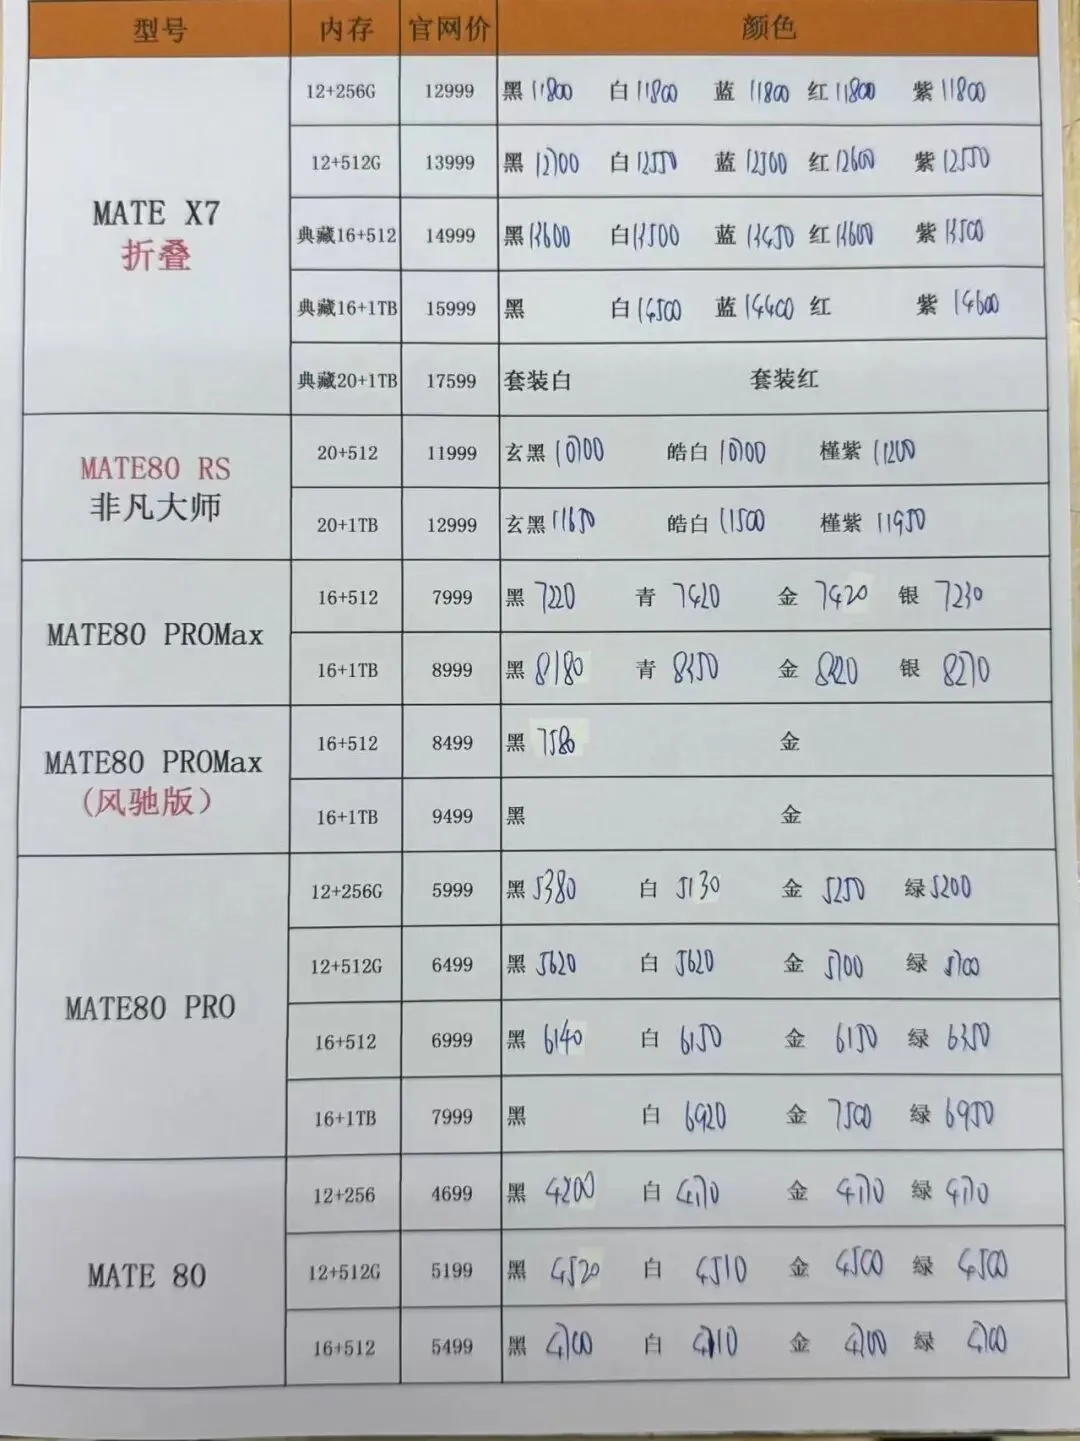 型号 内存 官网价 颜色
12+256G 12999 黑 11800 白 11800 蓝 11800 红 11800 紫 11800
12+512G 13999 黑 12700 白 12550 蓝 12500 红 12600 紫 12550
MATE X7
折叠
典藏16+512 14999 黑 13600 白 13500 蓝 13450 红 13600 紫 13500
典藏16+1TB 15999 黑 白 14500 蓝 14400 红 紫 14600
典藏20+1TB 17599 套装白 套装红
MATE80 RS
非凡大师
20+512 11999 玄黑 10700 皓白 10700 槿紫 11200
20+1TB 12999 玄黑 11650 皓白 11500 槿紫 11950
MATE80 PROMax
16+512 7999 黑 7220 青 7420 金 7420 银 7230
16+1TB 8999 黑 8180 青 8350 金 银 8270
MATE80 PROMax
(风驰版)
16+512 8499 黑 7580 金
16+1TB 9499 黑 金
MATE80 PRO
12+256G 5999 黑 5380 白 5130 金 5250 绿 5200
12+512G 6499 黑 5620 白 5620 金 5700 绿 5700
16+512 6999 黑 6140 白 6150 金 6150 绿 6350
16+1TB 7999 黑 白 6920 金 7500 绿 6950
MATE 80
12+256 4699 黑 4200 白 4170 金 4170 绿 4170
12+512G 5199 黑 4520 白 4510 金 4500 绿 4500
16+512 5499 黑 4700 白 4710 金 4700 绿 4700